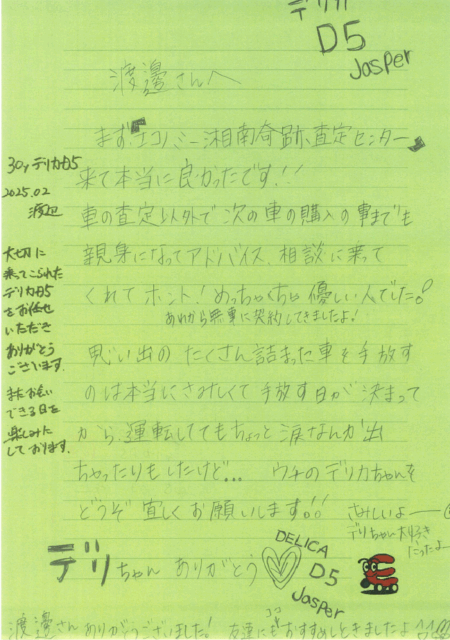 デリカ
D5
Jasper
渡邊さんへ
まず、『エコノミー湘南奇跡査定センター』
来て本当に良かったです!!
車の査定以外で次の車の購入の事までも
親身になってアドバイス、相談に乗って
くれてホント!めっちゃくちゃ優しい人でした!
あれから無事に契約してきましたよ!
思い出のたくさん詰まった車を手放す
のは本当にさみしくて手放す日が決まって
から、運転しててもちょっと涙なんか出
ちゃったりもしたけど... ウチのデリカちゃんを
どうぞ宜しくお願いします!!
さみしいよー
デリちゃん大好き
だったよ
デリちゃん ありがとう
DELICA
D5
Jasper
渡邊さんありがとうございました! 友達にもおすすめしときましたよ!!
30y デリカD5
2025.02
渡辺
大切に
乗ってこられた
デリカD5
をお任せ
いただき
ありがとう
ございます。
またお会い
できる日を
楽しみに
しております。